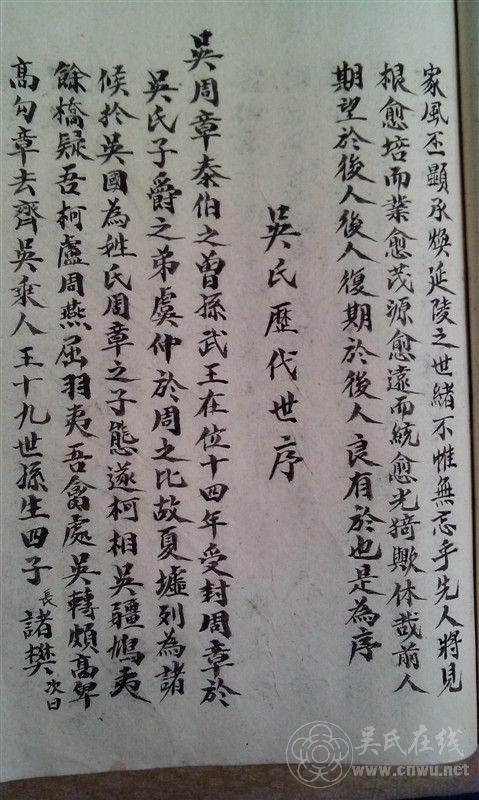 家風丕顯承煥延陵之世緒不惟無忘乎先人將見
根愈培而葉愈茂源愈遠而統愈光猗歟休哉前人
期望於後人後人復期於後人良有於也是為序
吳氏歷代世序
吳周章泰伯之曾孫武王在位十四年受封周章於
吳氏子爵之弟虞仲於周之比故夏墟列為諸
候於吳國為姓氏周章之子態遂柯相吳疆鳩夷
餘橋疑吾柯盧周燕屈羽夷吾禽處吳轉頗高卑
高勾章去齊吳乘人王十九世孫生四子長諸樊次曰
吴氏在线
www.cnwu.net